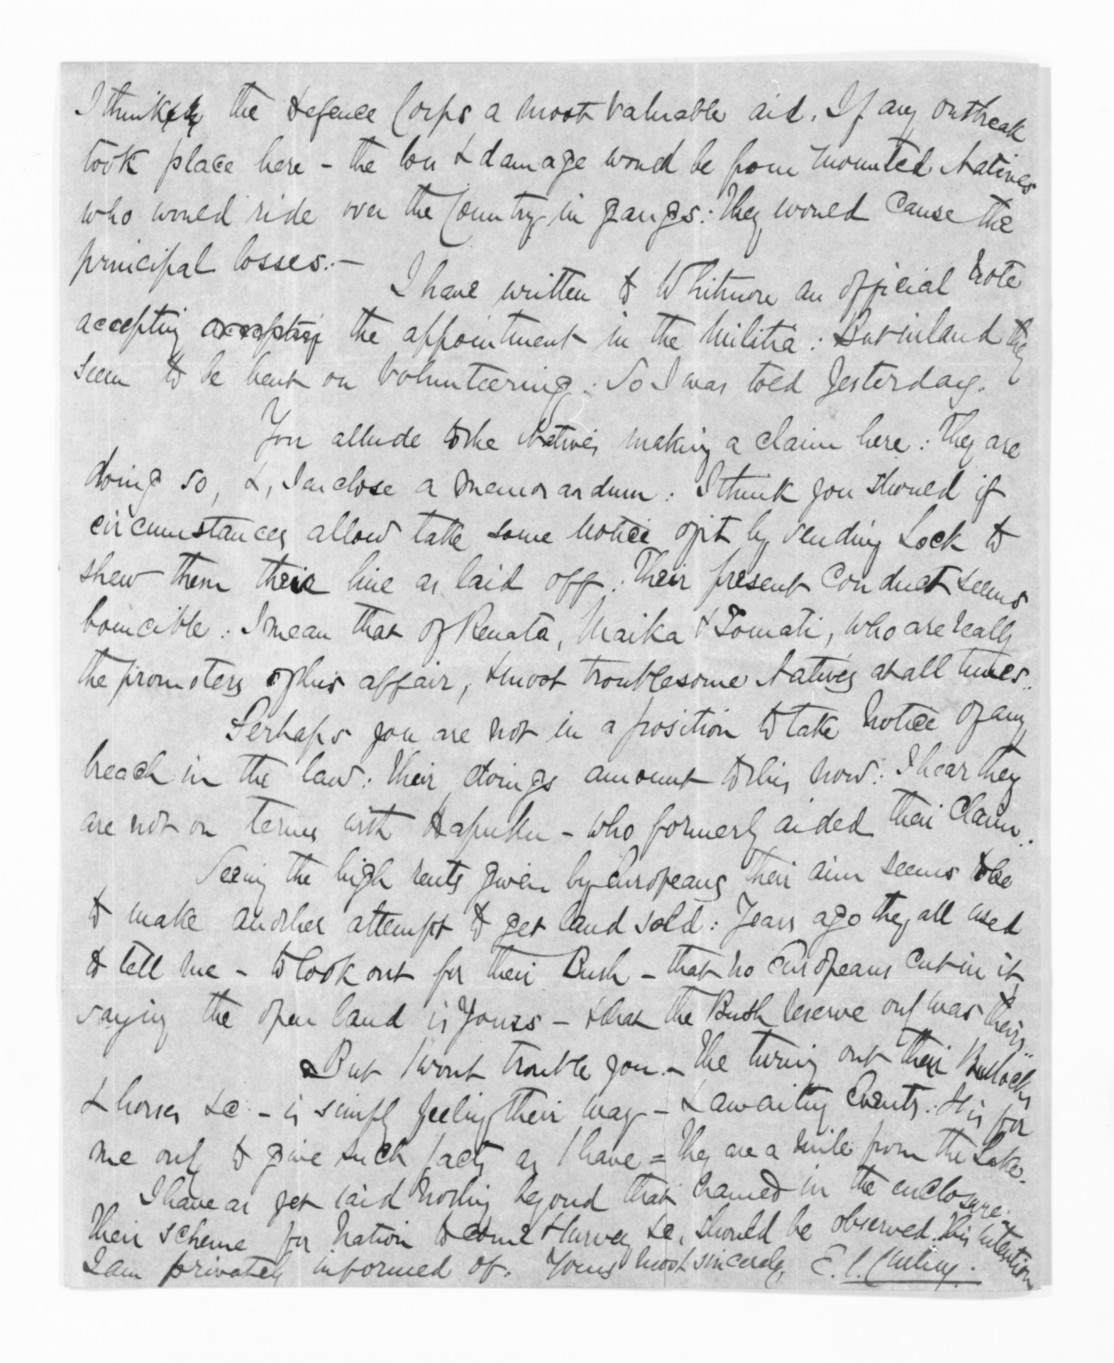 I think the Defence Corps a most valuable aid. If any outbreak
took place here - the loss & damage would be from mounted Natives
who would ride over the Country in gangs: They would cause the
principal losses. -
I have written to Whitmore an official note
accepting accepting the appointment in the Militia: But inland they
seem to be bent on Volunteering: So I was told Yesterday.
You allude to the Natives making a claim here: They are
doing so, &, I enclose a memorandum: I think you should if
circumstances allow take some notice of it by sending Lock to
shew them their line as laid off: Their present conduct seems
: I mean that of Renata, Maika & Tomati, who are really
the promoters of this affair, & most troublesome Natives at all times.
Perhaps you are not in a position to take notice of any
breach in the law: Their doings amount to this now: I hear they
are not on terms with Hapuku - who formerly aided their Claim.
Seeing the high rents given by Europeans their aim seems to be
to make another attempt to get land sold: Years ago they all used
to tell me - to look out for their Bush - that no Europeans cut in it,
saying the open land is Yours - & that the Bush Reserve only was theirs."
But I wont trouble you. - The turning out their Bullocks
& horses &c - is simply feeling their way - & awaiting Events. It is for
me only to give such facts as I have = They are a mile from the Lake.
I have as yet said nothing beyond that named in the enclosure. -
Their scheme for Nation to come & survey &c. should be observed. This intention
I am privately informed of. Yours most sincerely E. S. Curling.